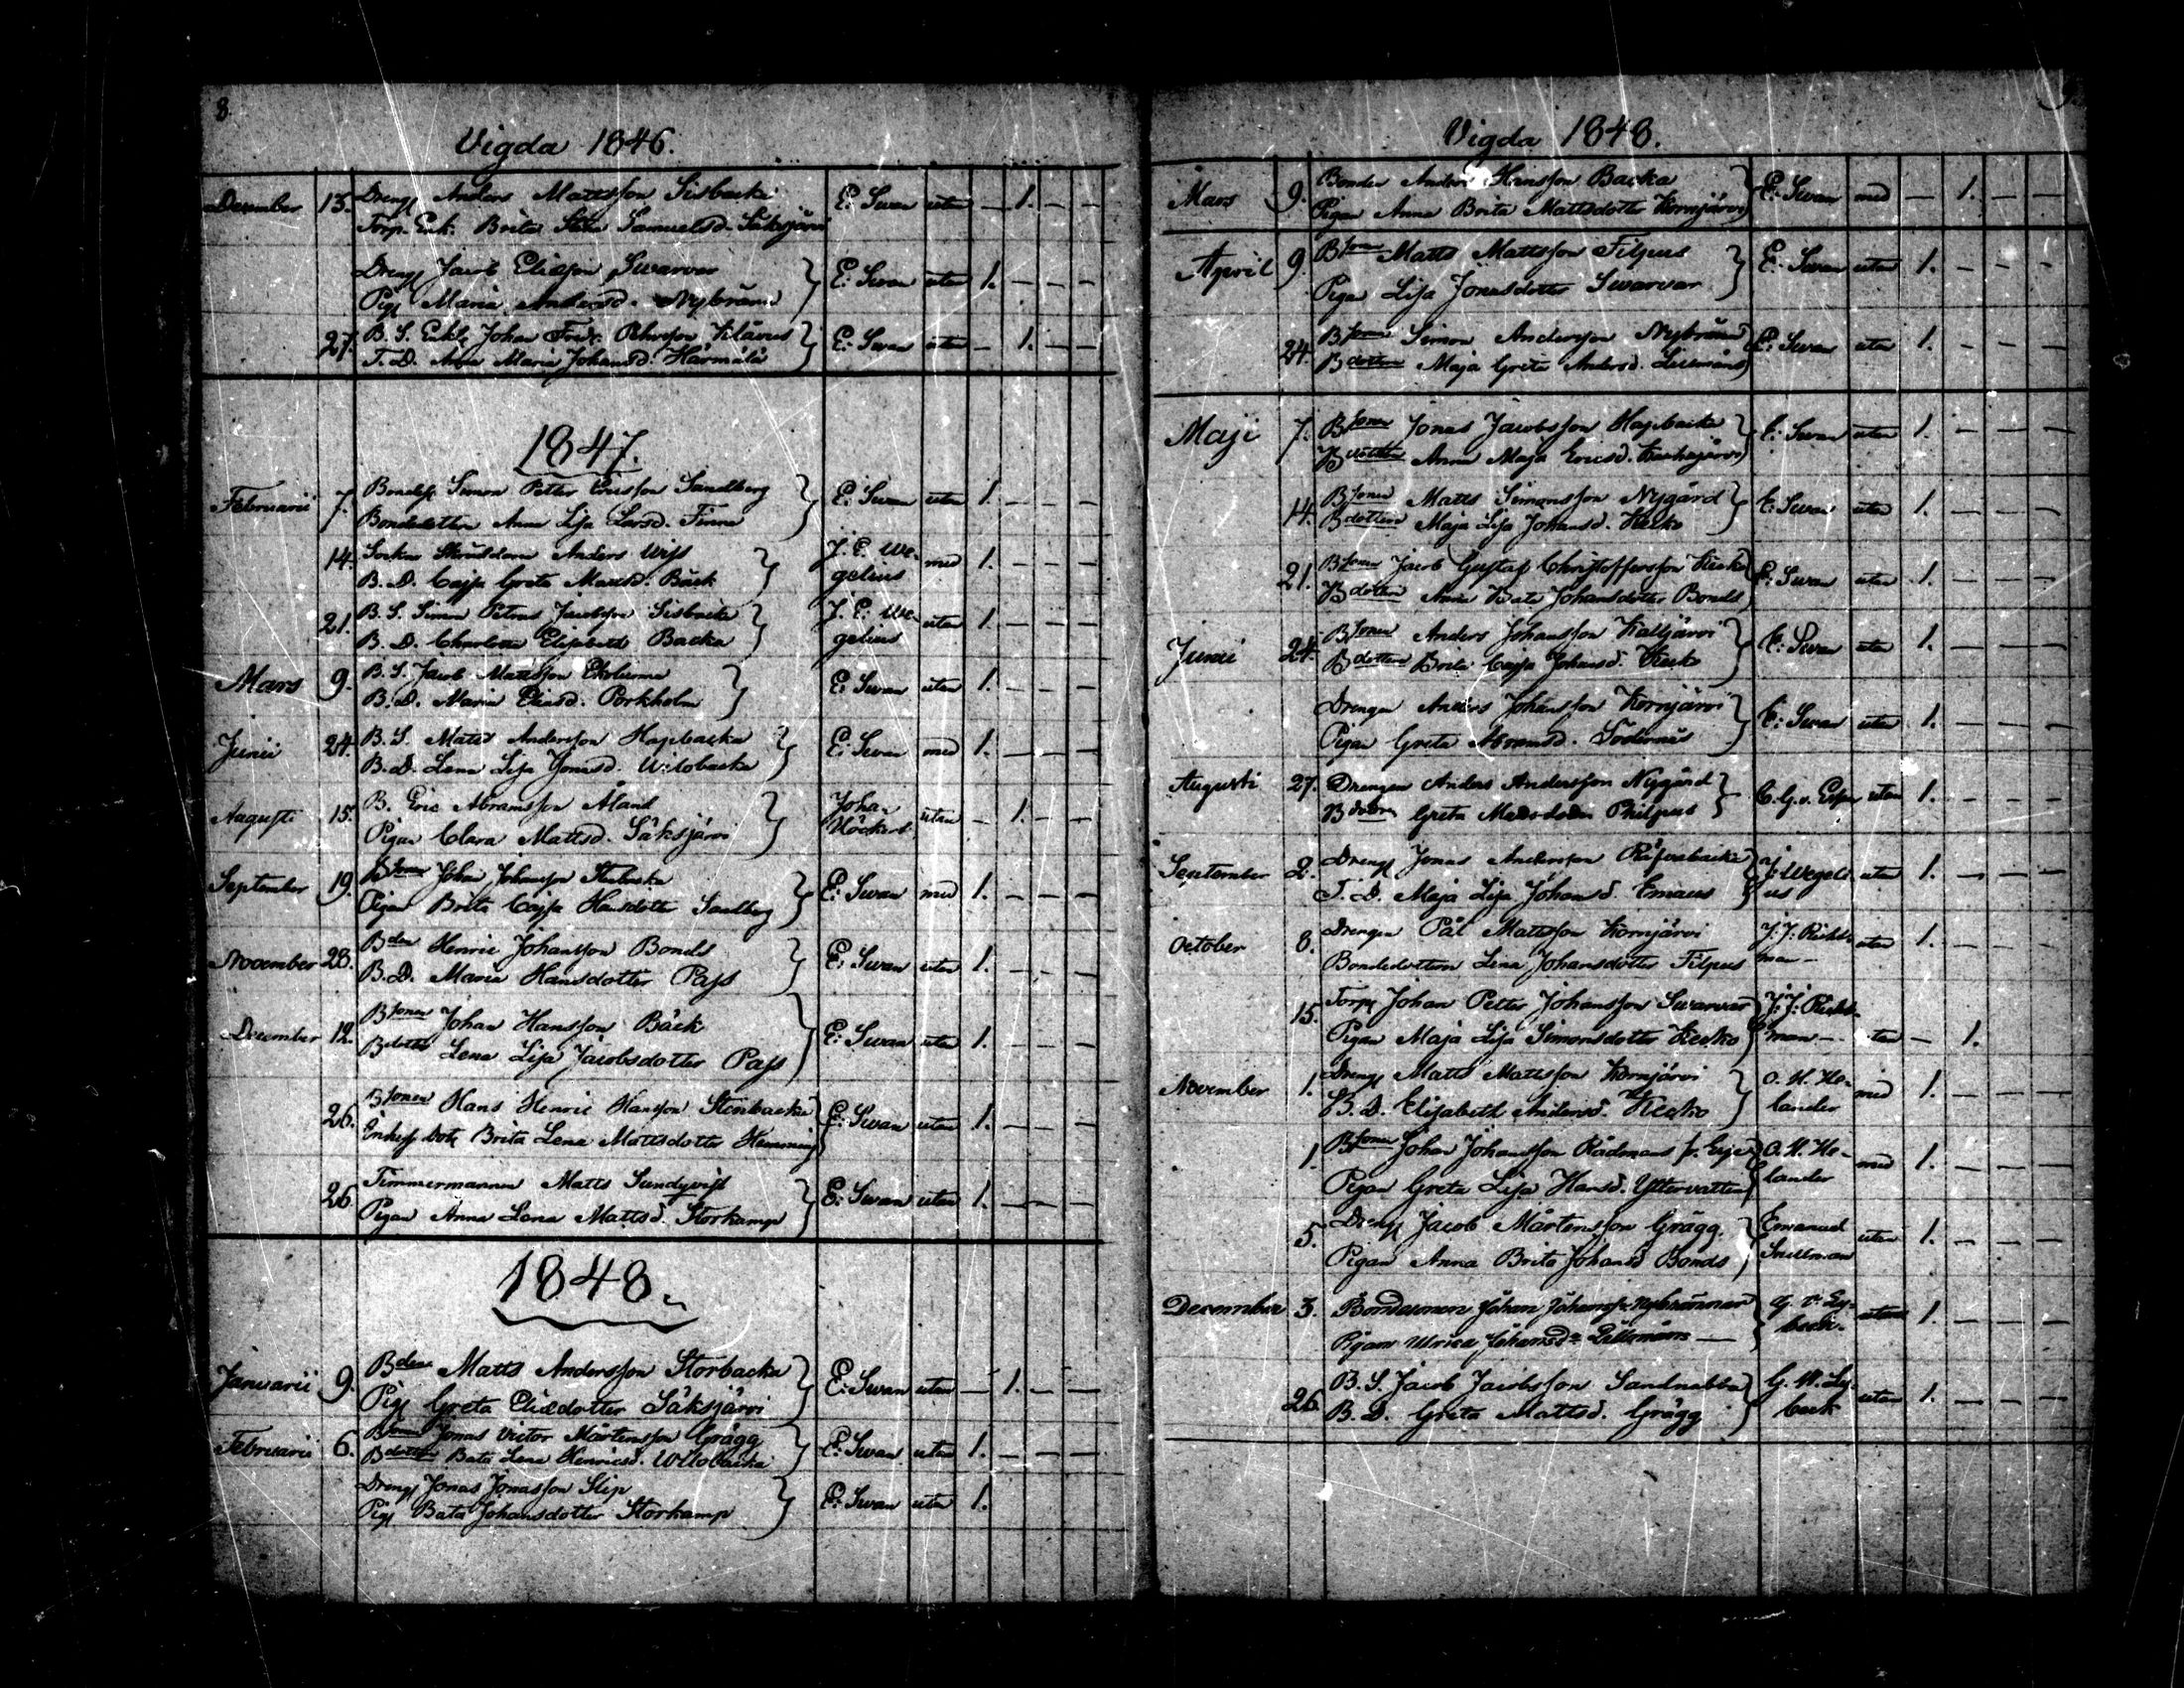 8.
Vigda 1846.
December 13. Dreng Anders Mattsson Sisbacka E: Swan utan — 1. — —
Torp. Enk. Brita Stina Samuelsd. Såksjärvi
Dreng Jacob Eliasson Swarvar E: Swan utan 1. — — —
Pig Maria Andersd. Nybränn
27. B. S. Enkl. Johan Fredr. E: Swan utan — 1. — —
T. D. Anna Maria Johansd. Härmälä
1847.
Februarii 7. Bondes. Simon Petter Ericsson Sandberg E: Swan utan 1. — — —
Bondedottern Anna Lisa Larsd. Finne
14. Sockne Skräddaren Anders Wiss J. E. We- med 1. — — —
B. D. Cajsa Greta Mattsd. Bäck gelius
21. B. S. Simon Petrus Jacobsson Sisbacka J. E. We- utan 1. — — —
B. D. Charlotta Elisabeth Backa gelius
Mars 9. B. S. Jacob Mattsson E: Swan utan 1. — — —
B. D. Maria Eliasd. Porkholm
Junii 24. B. S. Matts Andersson Hagbacka E: Swan med 1. — — —
B. D. Lena Lisa Jonasd. Wilobacka
Augusti 15. B. Eric Abramsson Åland Johan utan — 1. — —
Pigan Clara Mattsd. Såksjärvi Höckert
September 19. B sonen Johan Johansson Stenbacka E: Swan med 1. — — —
Pigan Brita Cajsa Hansdotter Sandberg
November 28. Bden Henric Johansson Bonds E: Swan utan 1. — — —
B. D. Maria Hansdotter Pass
December 12. B sonen Johan Hansson Bäck E: Swan utan 1. — — —
B dotter Lena Lisa Jacobsdotter Pass
26. B sonen Hans Henric Hansson Stenbacka E: Swan utan 1. — — —
Enkes dott. Brita Lena Mattsdotter Hemming
26 Timmermannen Matts Sundqvist E: Swan utan 1. — — —
Pigan Anna Lena Mattsd. Storkamp
1848.
Januarii 9. Bden Matts Andersson Storbacka E: Swan utan — 1. — —
Pig Greta Eliædotter Såksjärvi
Februarii 6. B sonen Jonas Victor Mårtensson Grägg E: Swan utan 1. — — —
B dotter Bata Lena Henricsd. Willobacka
Dreng Jonas Jonasson Slip E: Swan utan 1.
Pig Bata Johansdotter Storkamp
9.
Vigda 1848.
Mars 9. Bonden Anders Hansson Backa E: Swan med — 1. — —
Pigan Anna Brita Mattsdotter Kornjärvi
April 9. B sonen Matts Mattsson Filpus E: Swan utan 1. — — —
Pigan Lisa Jonasdotter Swarvar
24. B sonen Simon Andersson Nybränn E: Swan utan 1. — — —
B dottern Maja Greta Andersd. Lillmåns
Maji 7. B sonen Jonas Jacobsson Hagbacka E: Swan utan 1. — — —
B dottern Anna Maja Ericsd.
14. B sonen Matts Simonsson Nygård E: Swan utan 1. — — —
B dottern Maja Lisa Johansd. Kecko
21. B sonen Jacob Gustaf Christoffersson Kecko E: Swan utan 1. — — —
B dottern Anna Bata Johansdotter Bonds
Junii 24. B sonen Anders Johansson Kaltjärvi E: Swan utan 1. — — —
B dottern Brita Cajsa Johansd. Keck
Drengen Anders Johansson Kornjärvi E: Swan utan 1. — — —
Pigan Greta Abramsd. Södernäs
Augusti 27. Drengen Anders Andersson Nygård C. G. v. Essen utan 1. — — —
B dottern Greta Mattsdotter Philpus
September 2. Dreng Jonas Andersson Räfvabacka J: Wegeli- utan 1. — — —
T. D. Maja Lisa Johansd. Emaus us
October 8. Drengen Pål Mattsson Kornjärvi J: J: Rickt- utan 1. — — —
Bondedottern Lena Johansdotter Filpus man —
15. Torp. Johan Petter Johansson Swarvar J: J: Rickt-
Pigan Maja Lisa Simonsdotter Kecko man — utan — 1.
November 1. Dreng Matts Mattsson Kornjärvi O. H. He- med 1. — — —
B. D. Elisabeth Andersd. Kecko lander
1. B sonen Johan Johansson Rådmans fr. O. H. He- med 1. — — —
Pigan Greta Lisa Hansd. Yttervatten lander
5. Dreng Jacob Mårtensson Grägg. Emanuel utan 1. — — —
Pigan Anna Brita Johansd Bonds Snellman
December 3. Bondesonen Johan Johanss. Nybrännar G. W. Ly- utan 1. — — —
Pigan Ulrica Johansd:r Lillmåns — beck.
26. B. S. Jacob Jacobsson Sandnabba G. W. Ly- utan 1. — — —
B. D. Greta Mattsd. Grägg beck